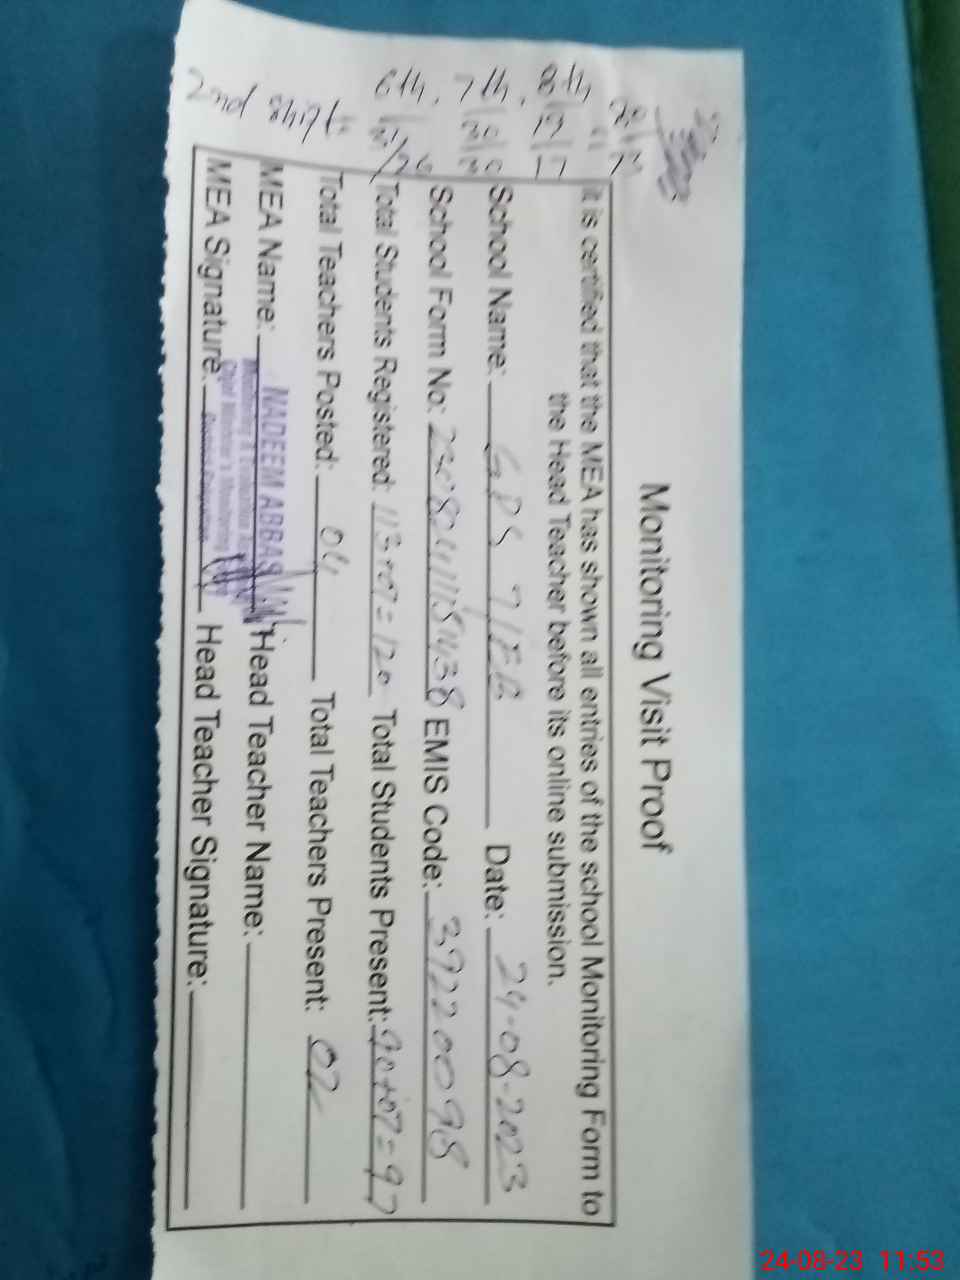 2nd shift
6th. 7th. 8th
Monitoring Visit Proof
It is certified that the MEA has shown all entries of the school Monitoring Form to
the Head Teacher before its online submission.
School Name: GPS 7/EB Date: 24-08-2023
School Form No: EMIS Code: 39220098
Total Students Registered: 113+07=120 Total Students Present: 90+07=97
Total Teachers Posted: 04 Total Teachers Present: 02
MEA Name: NADEEM ABBAS Head Teacher Name:
Monitoring & Evaluation
MEA Signature: Head Teacher Signature:
Chief Minister's Monitoring
24-08-23 11:53